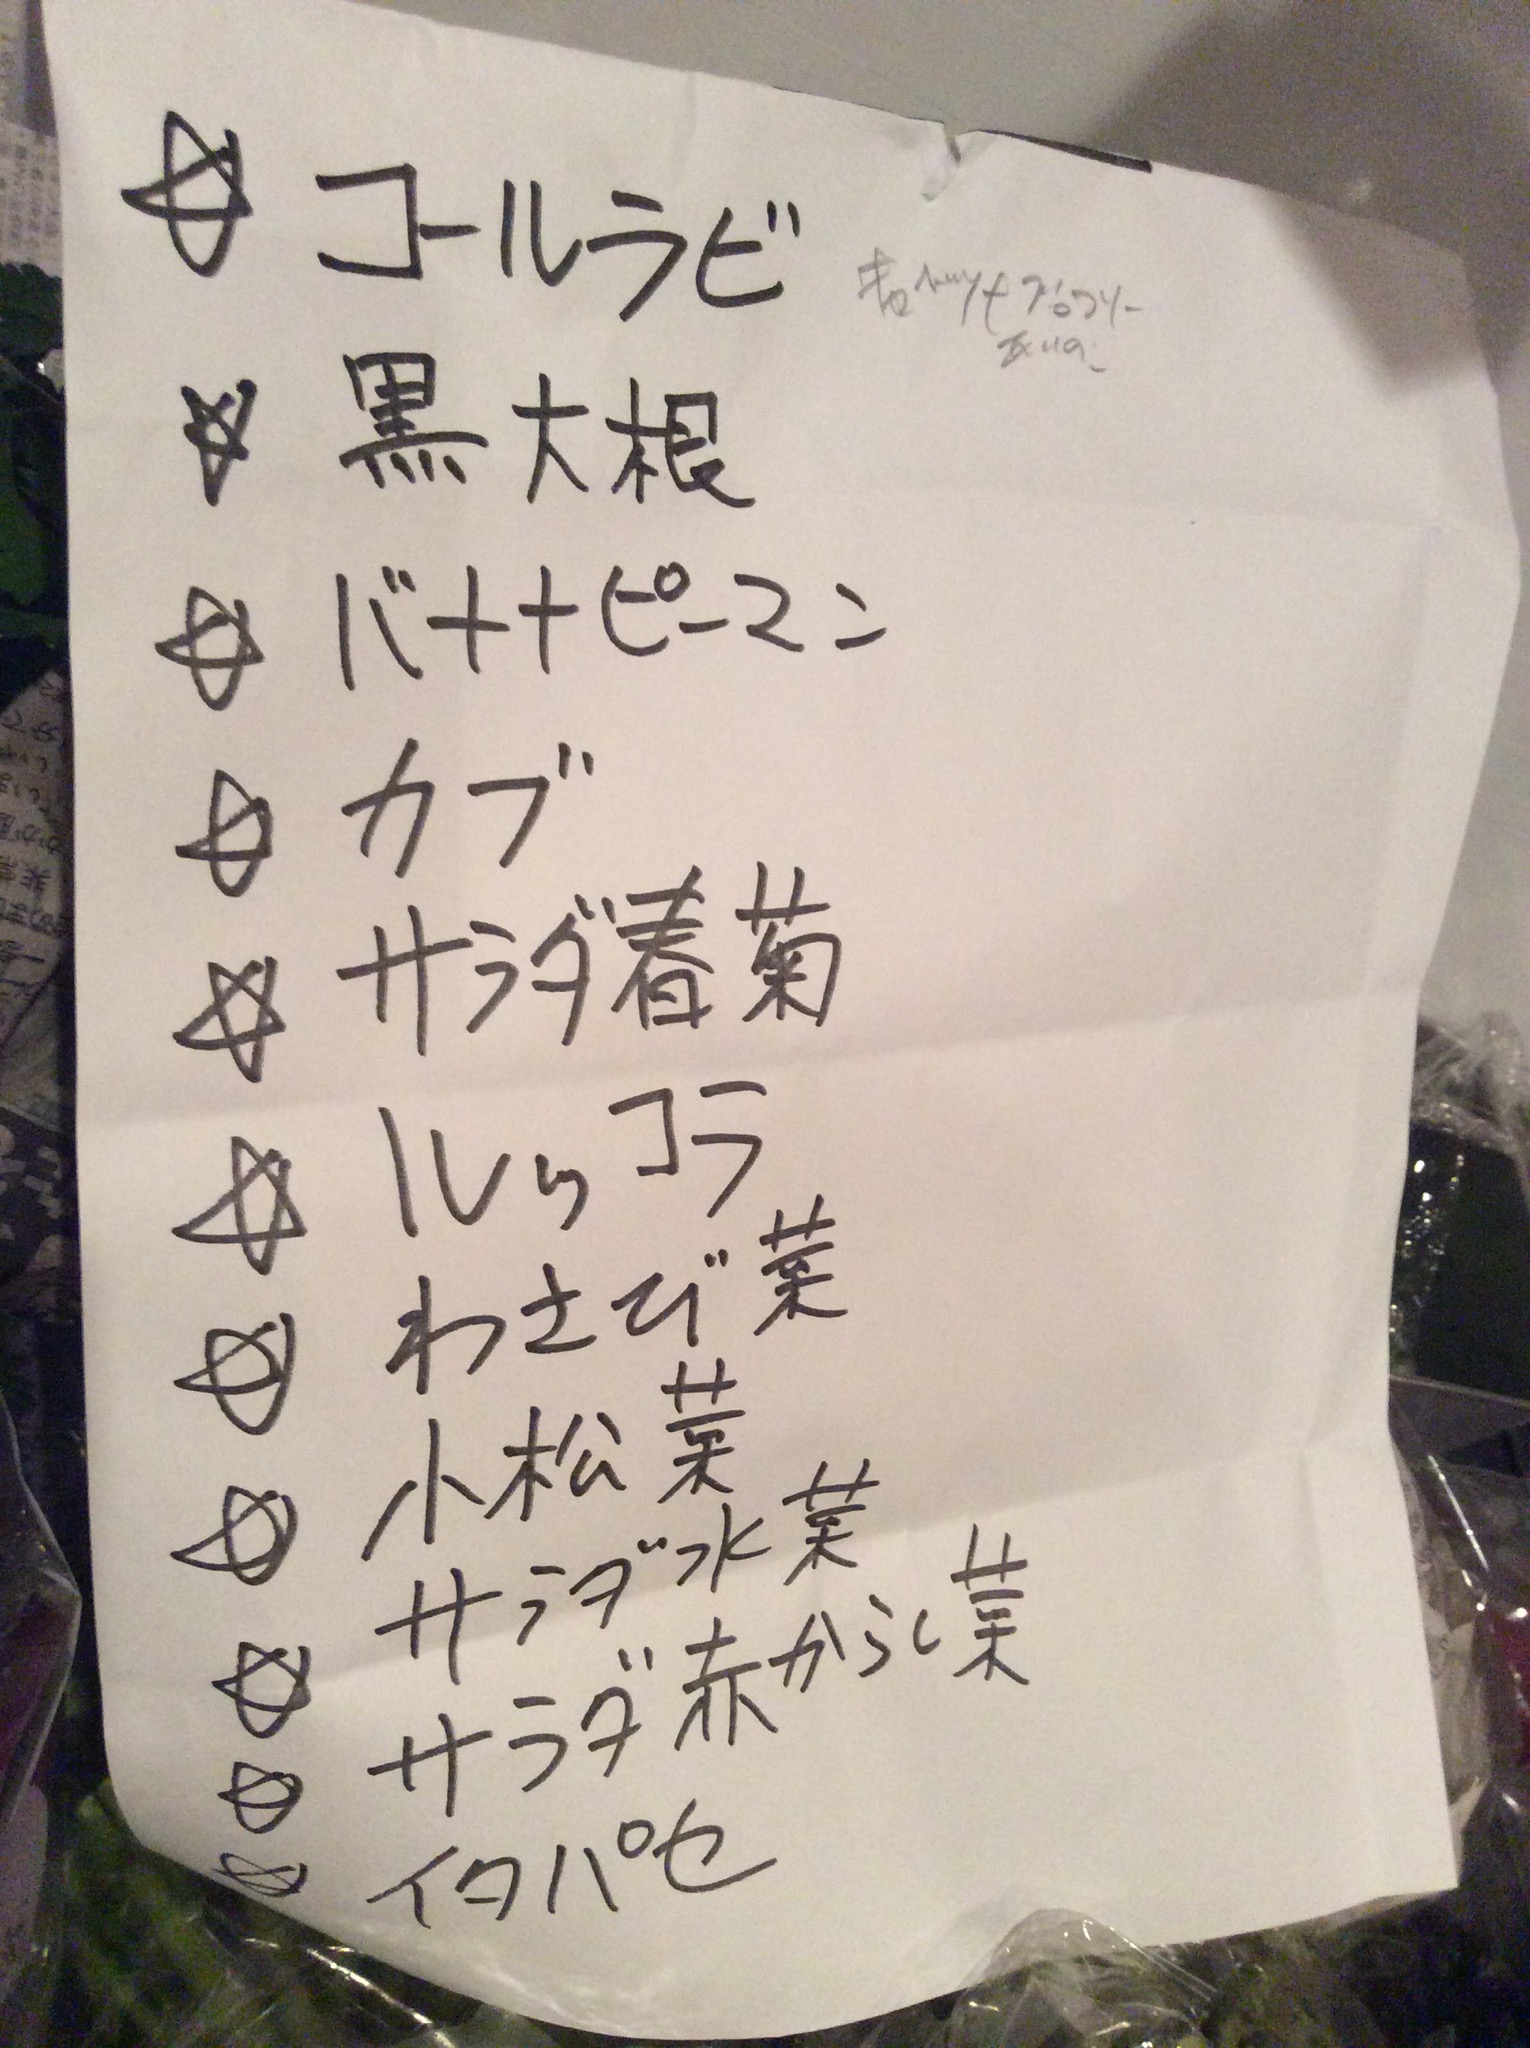 ☆ コールラビ
キャベツ+ブロッコリー
☆ 黒大根
☆ バナナピーマン
☆ カブ
☆ サラダ春菊
☆ ルッコラ
☆ わさび菜
☆ 小松菜
☆ サラダ水菜
☆ サラダ赤からし菜
☆ イタパセ